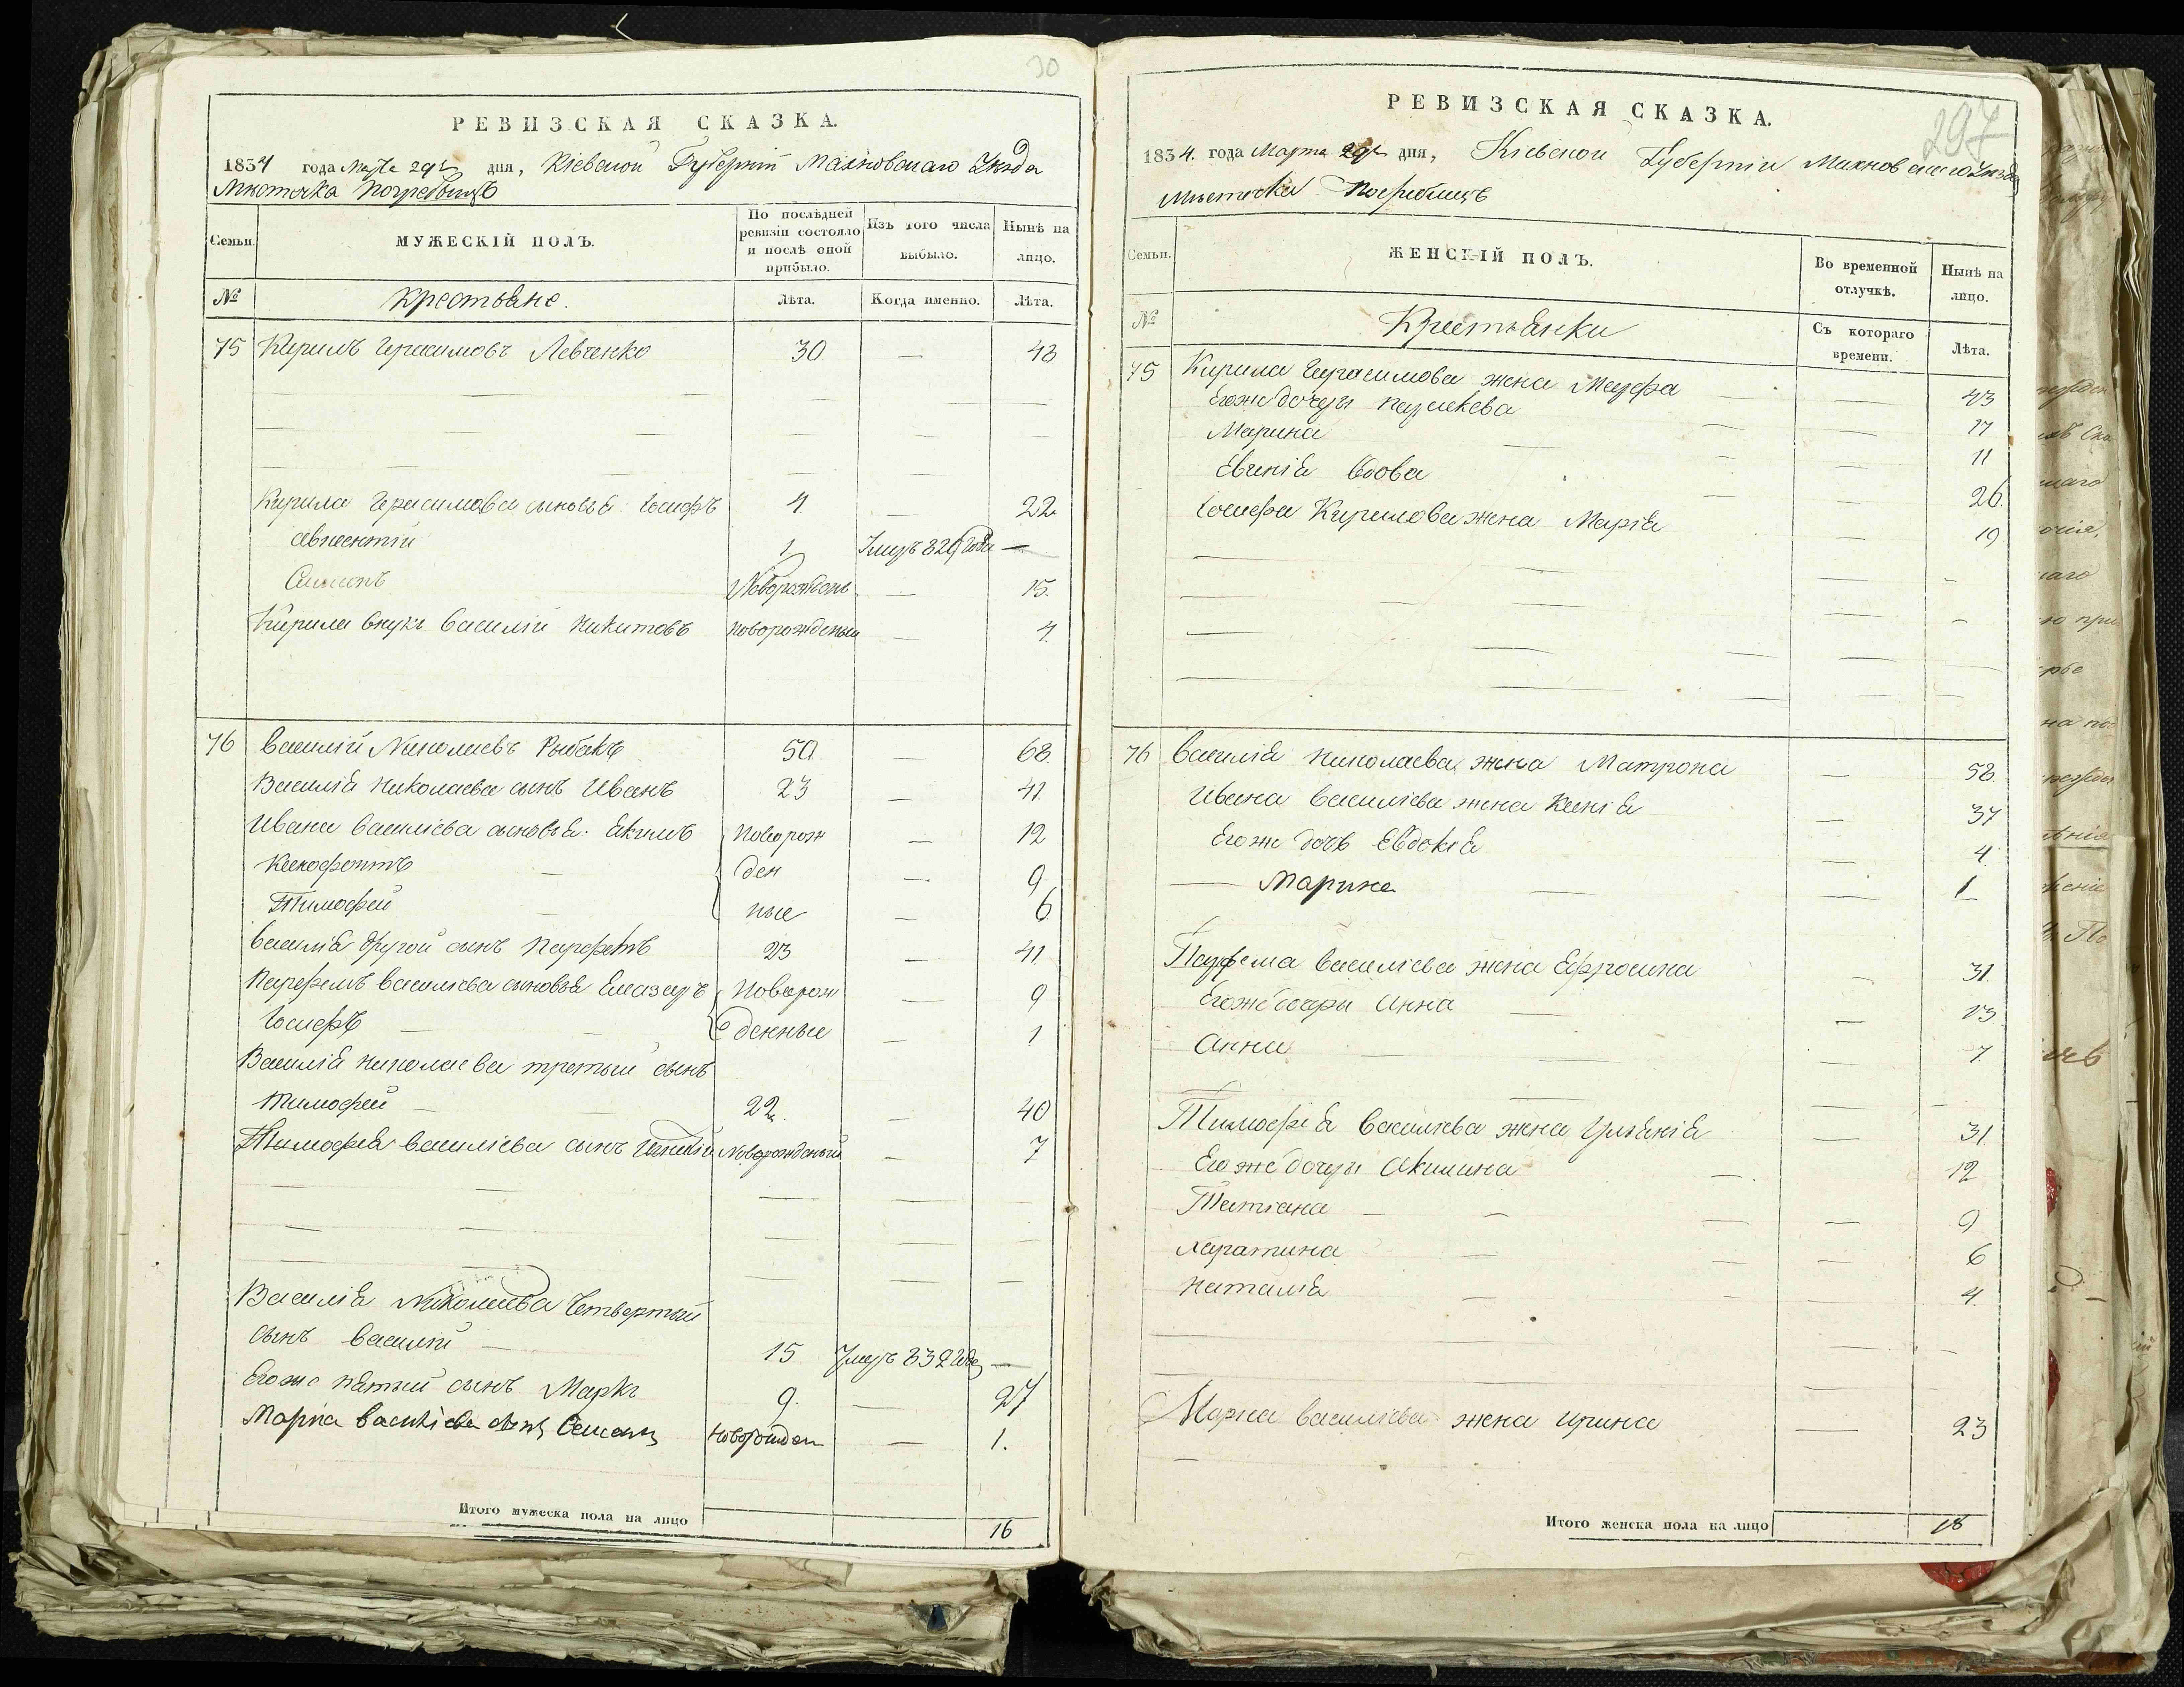 30
РЕВИЗСКАЯ СКАЗКА.
1834 года Марта 29 дня, Кіевской Губерніи Махновскаго Уѣзда
Мѣстечка Погребищъ
Семьи.
МУЖЕСКІЙ ПОЛЪ.
По послѣдней ревизіи состояло и послѣ оной прибыло.
Изъ того числа выбыло.
Нынѣ на лицо.
№
Крестьяне.
Лѣта.
Когда именно.
Лѣта.
75 Кирилъ Герасимовъ Левченко 30 — 48
Кирила Герасимова сыновья Іосифъ 4 — 22
1 Умеръ 826 года —
Семенъ Новорожден — 15.
Кирила внукъ Василій Никитовъ новорожденый — 4.
76 Василій Николаевъ Рыбакъ 50 — 68.
Василія Николаева сынъ Иванъ 23 — 41.
Ивана Василіева сыновья Якимъ Новорож — 12
Ксенофонтъ — ден — 9
Тимофей — ные — 6
Василія другой сынъ Парфемъ 23 — 41
Парфемъ Василіева сыновья Елазаръ Новорож — 9
Іосифъ — — денные — 1
Василія Николаева третый сынъ
Тимофей — — 22 — 40
Тимофея Василіева сынъ Новорожденый — 7
Василія Николаева Четвертый
сынъ Василій — 15 Умеръ 832 года —
Егоже пятый сынъ Маркъ 9. — 27
Марка Василіева сынъ Семенъ Новорожден — 1.
Итого мужеска пола на лицо 16
297
РЕВИЗСКАЯ СКАЗКА.
1834. года Марта 29 дня, Кіевской Губерніи Махновскаго Уѣзда
Мѣстечка Погребищъ
Семьи.
ЖЕНСКІЙ ПОЛЪ.
Во временной отлучкѣ.
Нынѣ на лицо.
№
Крестьянки
Съ котораго времени.
Лѣта.
75 Кирила Герасимова жена Марфа — 43
Егоже дочери Параскева — 17
Марина — — 11
Евгенія вдова — — 26.
Іосифа Кирилова жена Марія — 19
76 Василія Николаева жена Матрона — 58
Ивана Василіева жена Ксенія — 37
Егоже дочь Евдокія — 4
— Марина — 1
Парфема Василіева жена Ефросина — 31.
Егоже дочери Анна — — 13
Анна — — — 7.
Тимофія Василіева жена Уліянія — 31.
Егоже дочери Акилина — — 12
Татіана — — — — 9
Харатина — — — 6
Наталія — — — 4.
Марка Василіева жена Ирина — 23
Итого женска пола на лицо 18